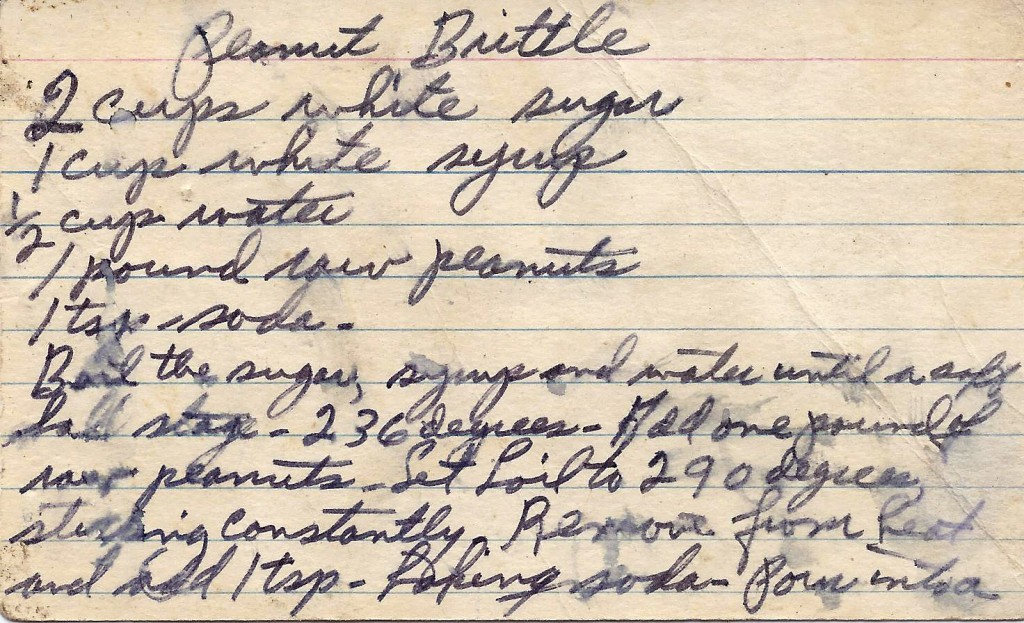 Peanut Brittle
2 cups white sugar
1 cup white syrup
1/2 cup water
1 pound raw peanuts
1 tsp soda.
Boil the sugar, syrup and water until a soft
ball stage - 236 degrees - Add one pound of
raw peanuts - Let boil to 290 degrees
stirring constantly. Remove from heat
and add 1 tsp - baking soda - Pour into a